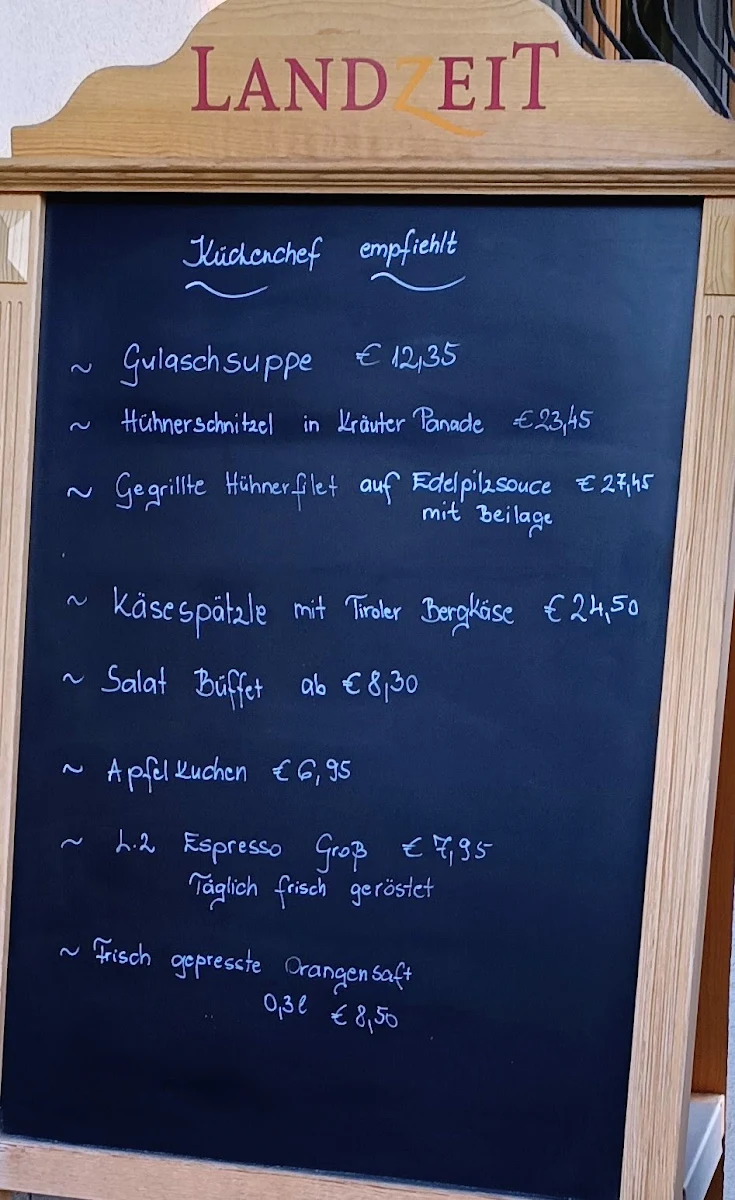 LANDZEIT
Küchenchef empfiehlt
~ Gulaschsuppe € 12,35
~ Hühnerschnitzel in Kräuter Panade € 23,45
~ Gegrillte Hühnerfilet auf Edelpilzsouce € 27,45
mit Beilage
~ Käsespätzle mit Tiroler Bergkäse € 24,50
~ Salat Büffet ab € 8,30
~ Apfelkuchen € 6,95
~ Espresso Groß € 7,95
Täglich frisch geröstet
~ Frisch gepresste Orangensaft
0,3l € 8,50